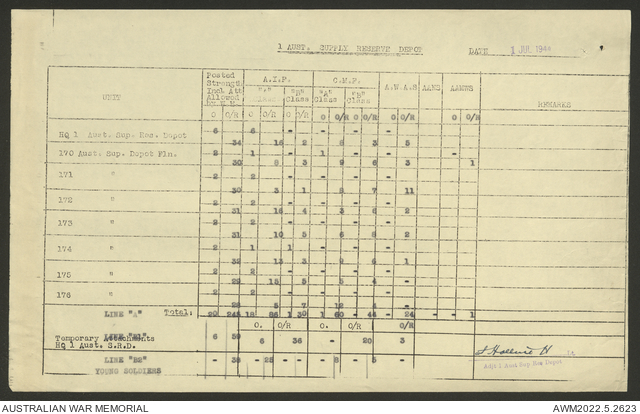 1 AUST. SUPPLY RESERVE DEPOT DATE 1 JUL 1944
UNIT Posted Strength Incl Att Allowed by W.E. A.I.F. C.M.F. A.W.A.S AANS AAMWS REMARKS
"A" Class "B" Class "A" Class "B" Class
O O/R O O/R O O/R O O/R O O/R O O/R O O/R
HQ 1 Aust. Sup. Res. Depot 6 6 - - - -
34 16 2 6 3 5
170 Aust. Sup. Depot Pln. 2 1 - 1 - - -
30 8 3 9 6 3 1
171 " 2 2 - - - -
30 3 1 8 7 11
172 " 2 2 - - - -
31 16 4 3 6 2
173 " 2 2 - - - -
31 10 5 6 8 2
174 " 2 1 1 - - -
32 13 3 9 6 1
175 " 2 2 - - - -
15 5 5 4 -
176 " 2 2 - - - -
5 7 12 4 -
LINE "A" Total: 20 18 1 30 1 60 - 44 - 24 - - 1
O. O/R O. O/R O/R
LINE "B1"
Temporary Attachments 6
HQ 1 Aust. S.R.D. 6 36 - 3
LINE "B2" - - - 5 -
YOUNG SOLDIERS
Lt
Adjt 1 Aust Sup Res Depot
AUSTRALIAN WAR MEMORIAL AWM2022.5.2623